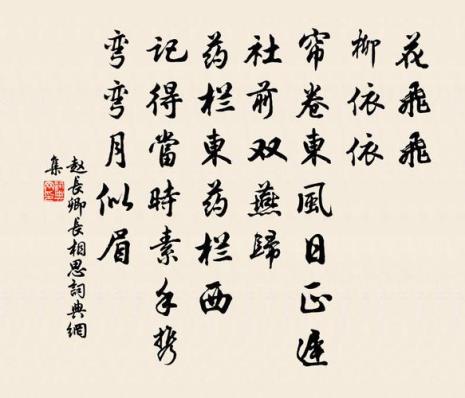 花飛飛
柳依依
帘卷東風日正遲
社前双燕歸
药栏東药栏西
記得當時素手携
彎彎月似眉
赵長卿長相思詞典網
集